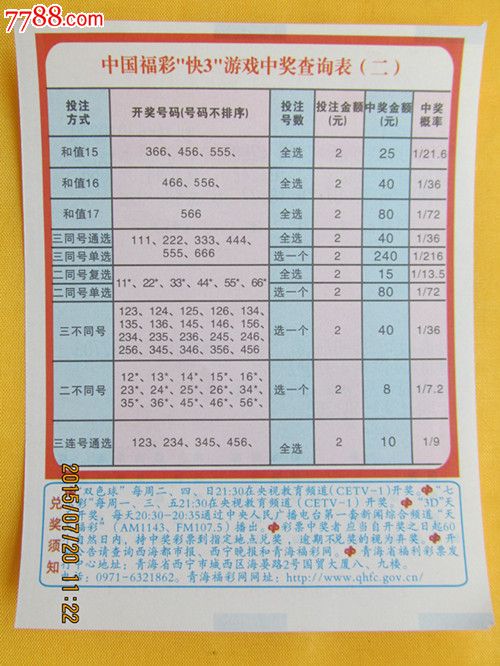 7788.com
中国福彩"快3"游戏中奖查询表（二）
投注方式 开奖号码(号码不排序) 投注号数 投注金额(元) 中奖金额(元) 中奖概率
和值15 366、456、555、 全选 2 25 1/21.6
和值16 466、556、 全选 2 40 1/36
和值17 566 全选 2 80 1/72
三同号通选 111、222、333、444、 全选 2 40 1/36
三同号单选 555、666 选一个 2 240 1/216
二同号复选 11*、22*、33*、44*、55*、66* 全选 2 15 1/13.5
二同号单选 选一个 2 80 1/72
123、124、125、126、134、
135、136、145、146、156、
三不同号 234、235、236、245、246、 选一个 2 40 1/36
256、345、346、356、456
12*、13*、14*、15*、16*、
二不同号 23*、24*、25*、26*、34*、 选一个 2 8 1/7.2
35*、36*、45*、46*、56*、
三连号通选 123、234、345、456、 全选 2 10 1/9
兑奖须知
双色球”每周二、四、日21:30在央视教育频道(CETV-1)开奖。“七
每周一、三、五21:30在央视教育频道(CETV-1)开奖。“3D”天
奖，每天20:30-20:35通过中央人民广播电台第一套新闻综合频道“天
(AM1143、FM107.5)播出。彩票中奖者应当自开奖之日起60
自然日内，持中奖彩票到指定地点兑奖，逾期不兑奖的视为弃奖。开
告请查询西海都市报、西宁晚报和青海福彩网。青海省福利彩票发
中心地址：青海省西宁市城西区海晏路2号国贸大厦八、九楼。
0971-6321862。青海福彩网网址：http://www.qhfc.gov.cn/
2015/07/20 11:22